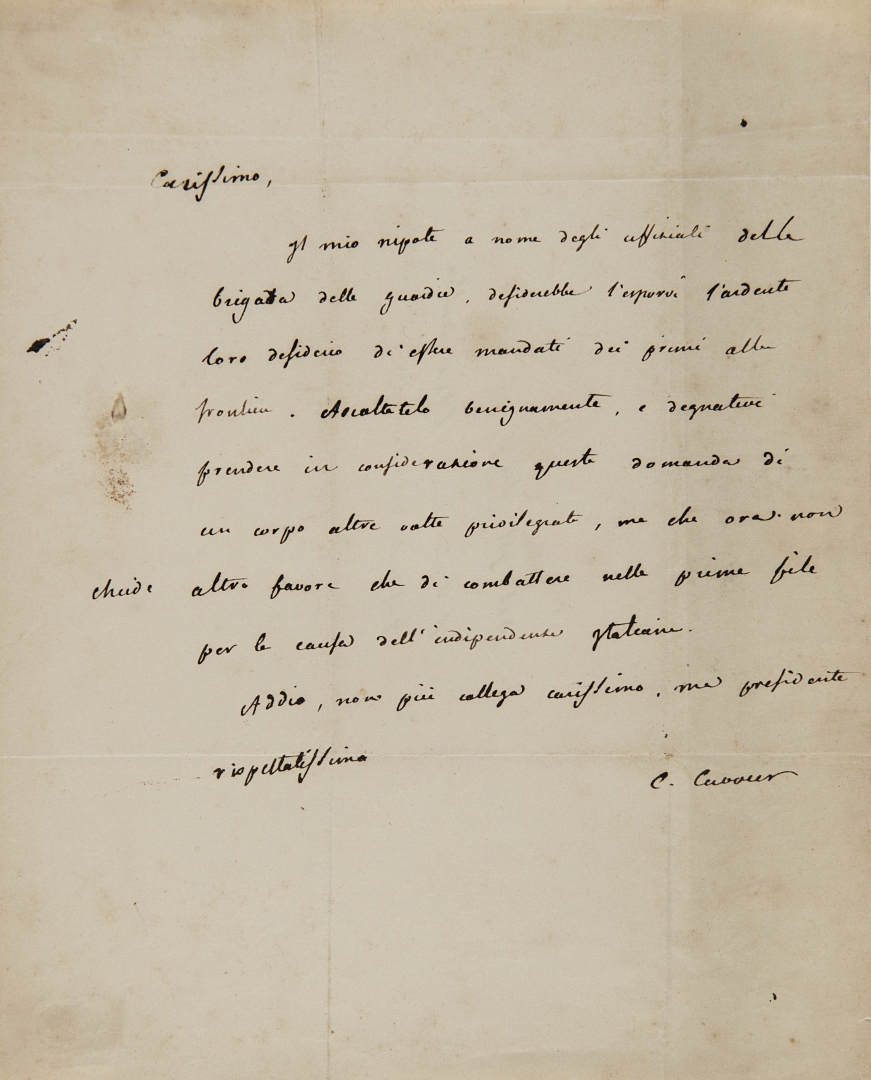 Carissimo,
Il mio nipote a nome degli uffiziali della
brigata delle guardie, desiderebbe l'esporvi l'ardente
loro desiderio di essere mandati dei primi alla
frontiera. Ascoltatelo benignamente, e degnatevi
prendere in considerazione questa domanda di
un corpo altre volte privilegiato, ma che ora non
chiede altro favore che di combattere nelle prime file
per la causa dell'indipendenza Italiana.
Addio, non più collega carissimo, ma presidente
rispettatissimo
C. Cavour